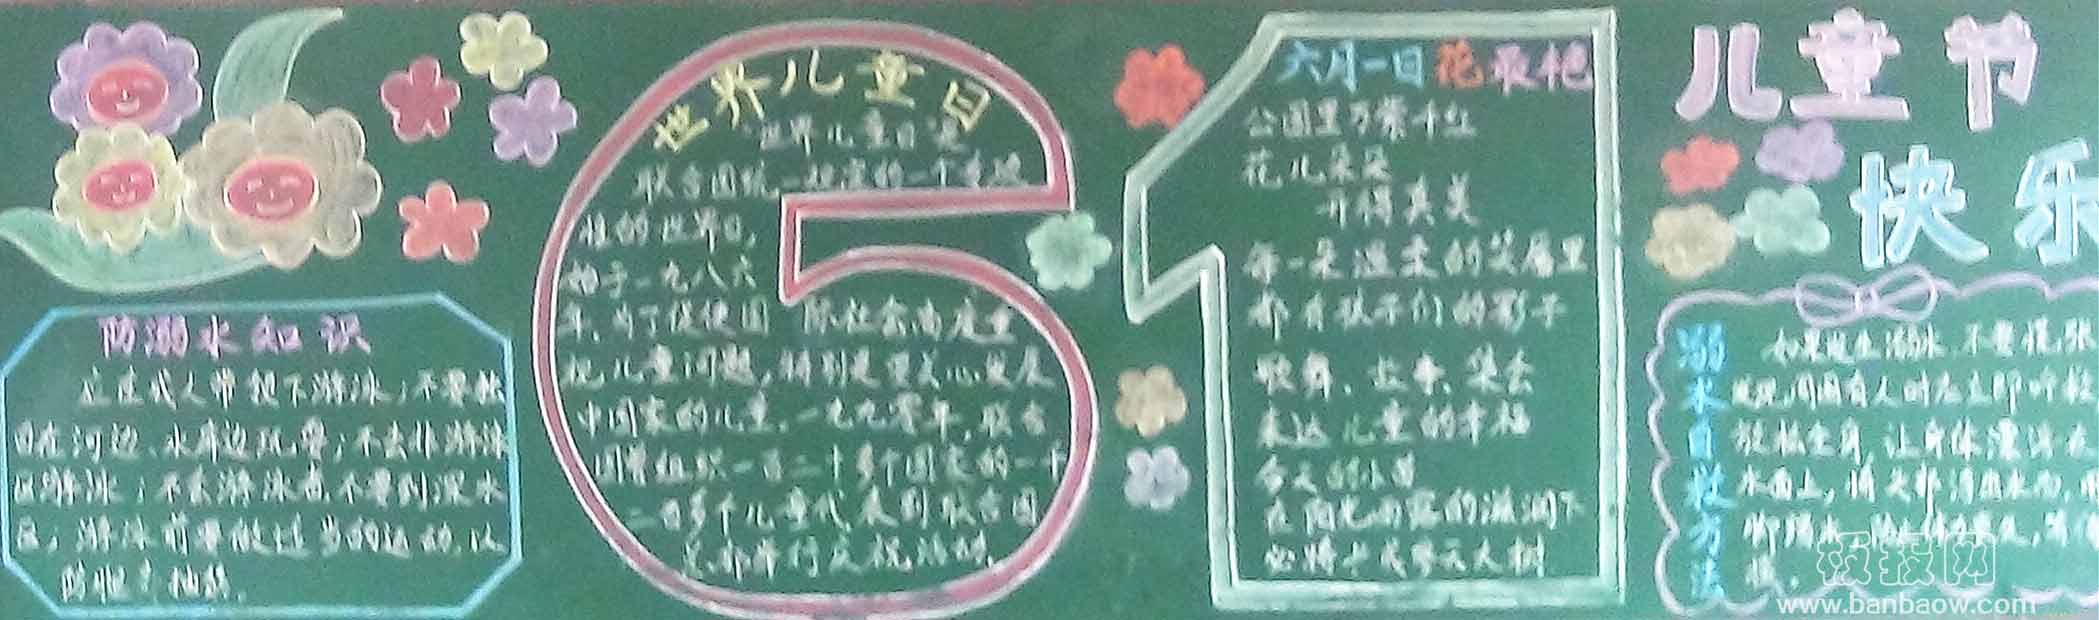 防溺水知识
应在成人带领下游泳；不要独
自在河边、水库边玩耍；不去非游泳
区游泳；不会游泳者，不要到深水
区；游泳前要做适当的运动，以
防止抽筋。
世界儿童日
“世界儿童日”是
联合国统一规定的一个
性的世界日，
始于一九八六
年，为了促使国际社会高度重
视儿童问题，特别是要关心发展
中国家的儿童，一九九零年，联合
国曾组织一百二十多个国家的一千
二百多个儿童代表到联合国
总部举行庆祝活动。
六月一日花最艳
公园里万紫千红
花儿朵朵
开得真美
每一朵温柔的笑厝里
都有孩子们的影子
歌舞、故事、集会
表达儿童的幸福
今天的小苗
在阳光雨露的滋润下
必将长成参天大树
儿童节
快乐
溺水自救方法
如果发生溺水，不要慌张
发现周围有人时应立即呼救
放松全身，让身体漂浮在
水面上，将头部浮出水面，用
脚踢水，
板报网
www.banbaow.com